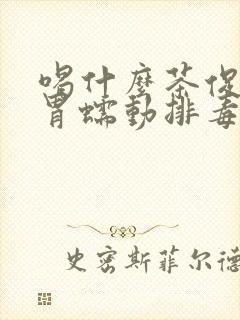 喝什麼茶促
胃蠕動排毒
史密斯菲尔德